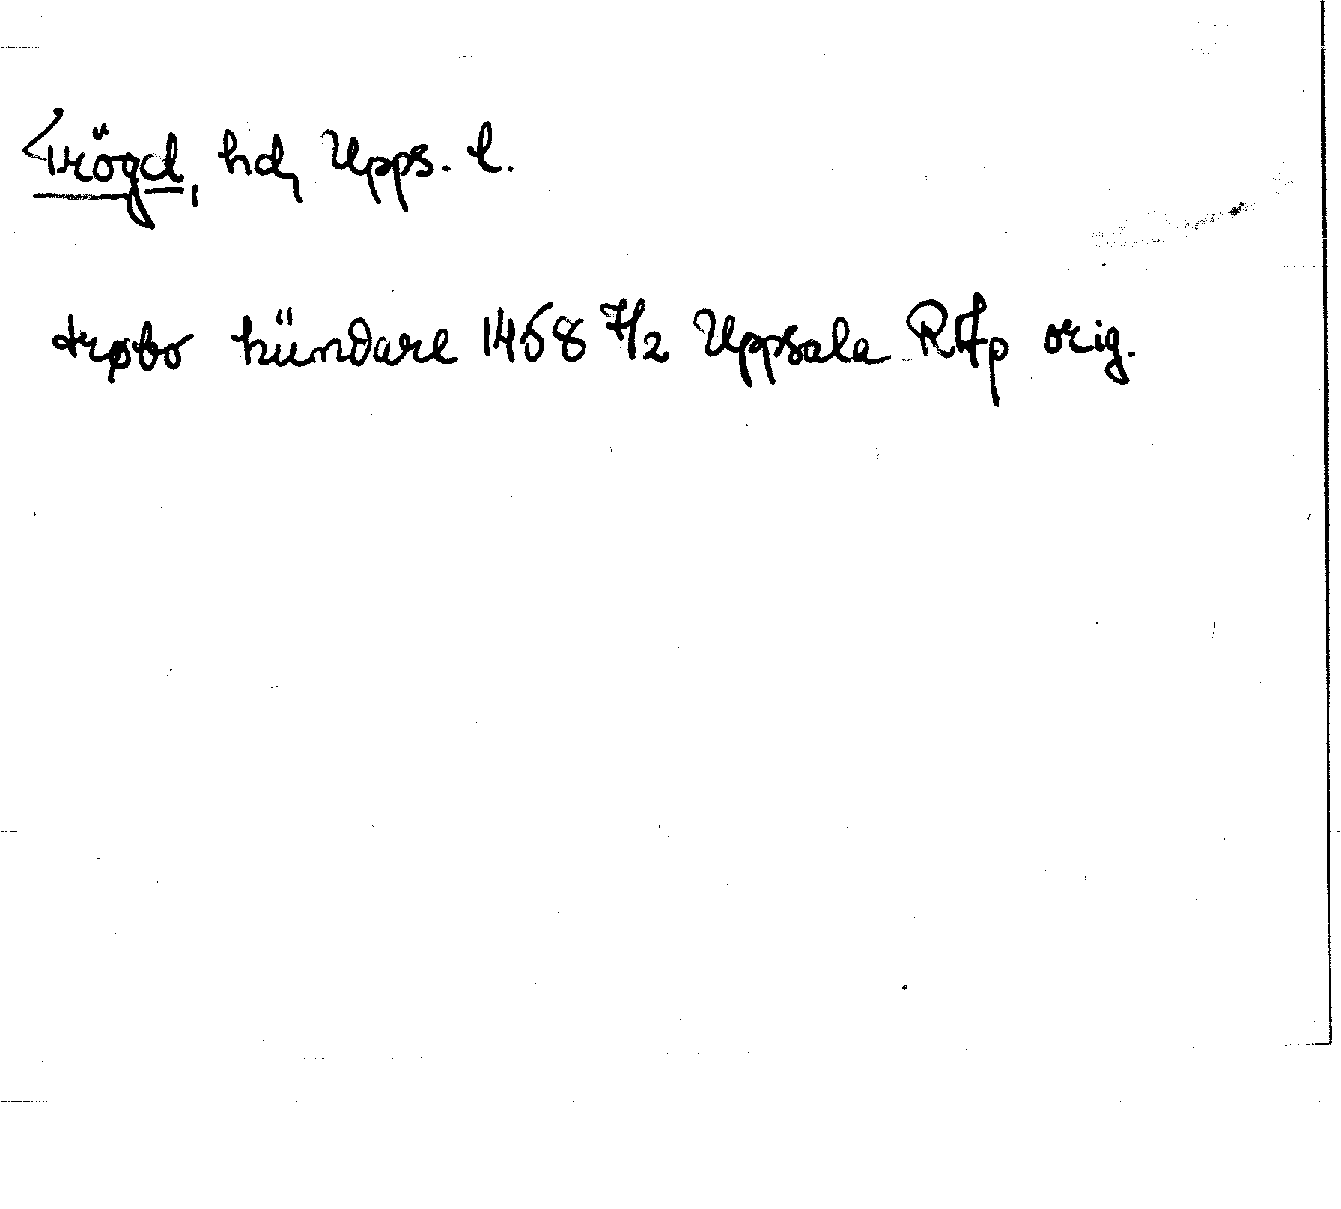 Trögd, hd, Upps. l.
trøbo hündare 1458 7/2 Uppsala RAp orig.